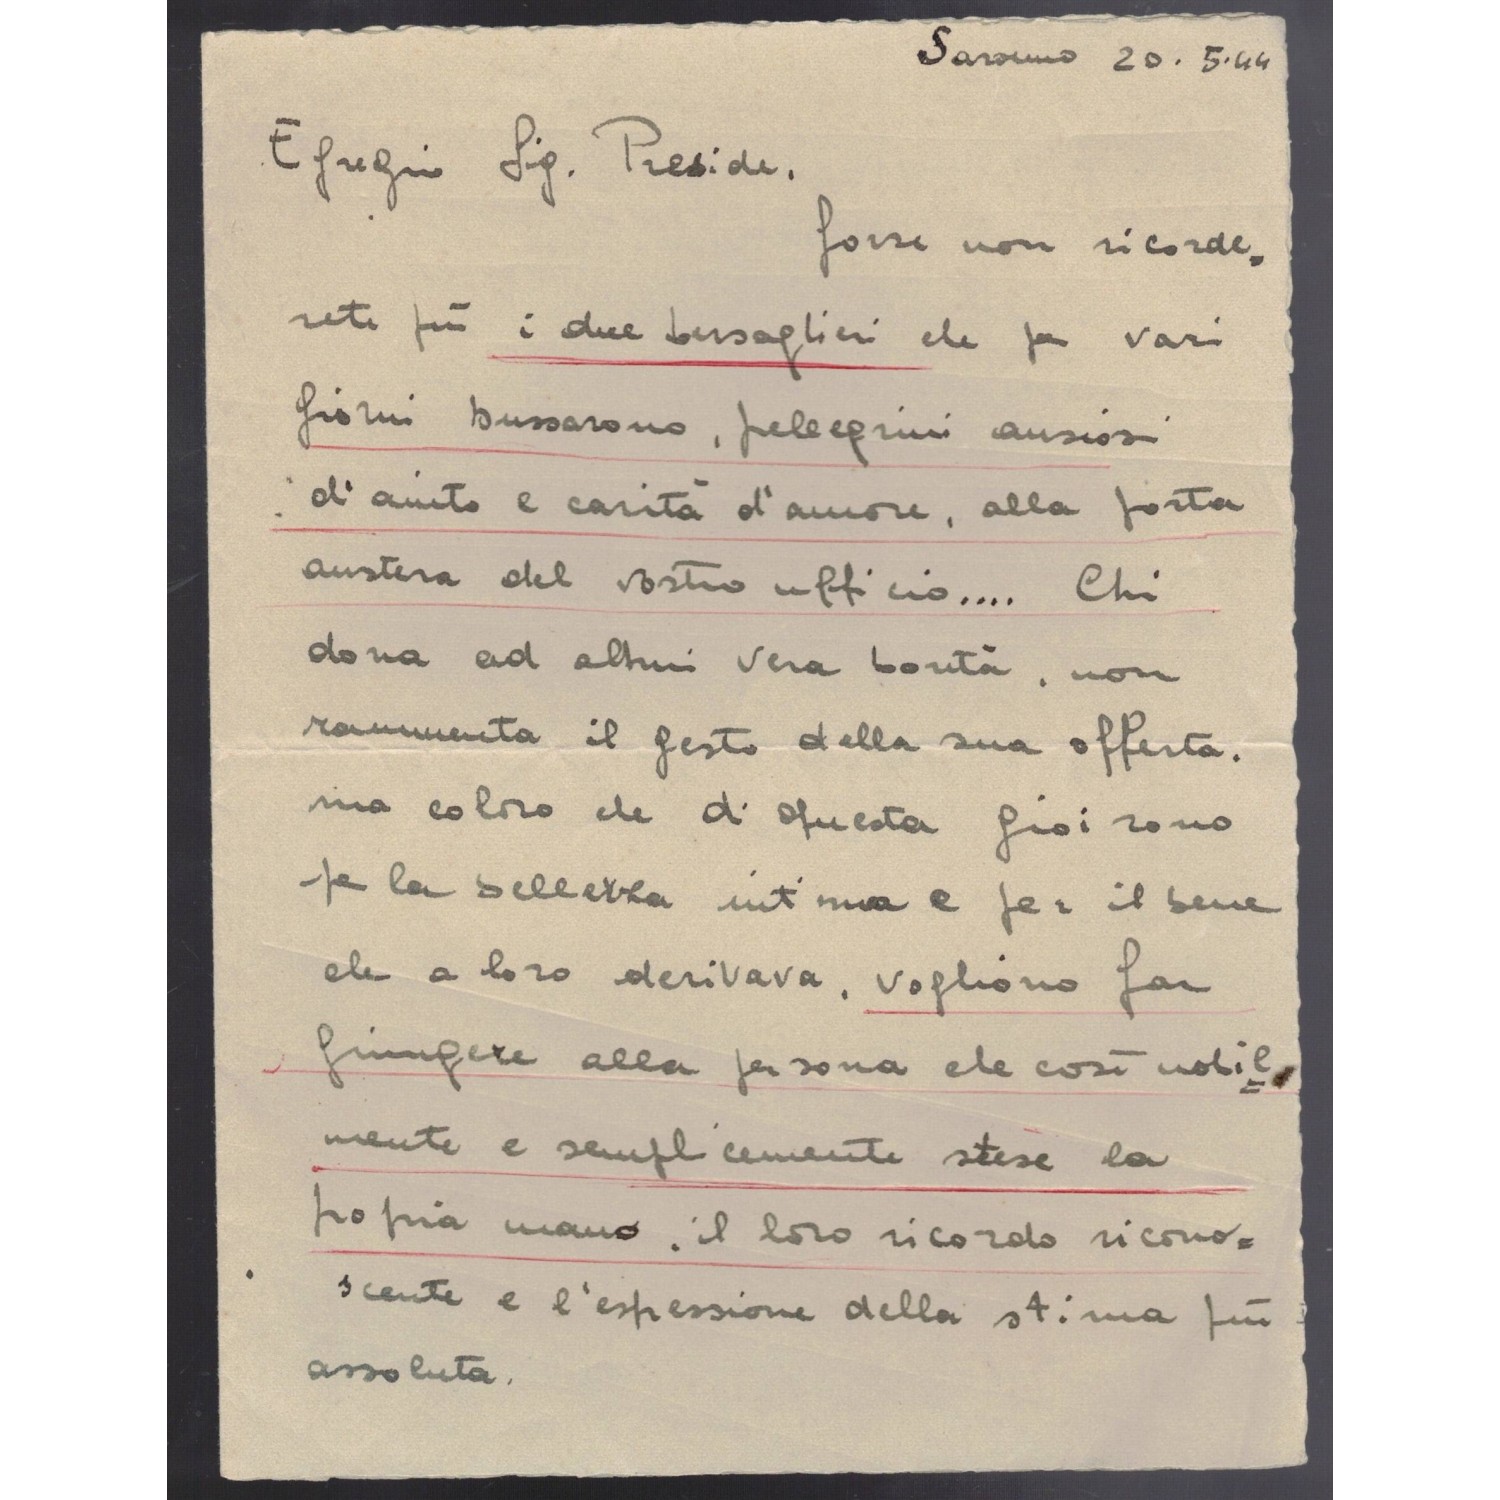 Saronno 20.5.44
Egregio Sig. Preside.
forse non ricorde=
rete più i due bersaglieri che per vari
giorni bussarono, pellegrini ansiosi
d'aiuto e carità d'amore, alla porta
austera del vostro ufficio.... Chi
dona ad altrui vera bontà, non
rammenta il gesto della sua offerta.
ma coloro che di questa gioirono
per la bellezza intima e per il bene
che a loro derivava, vogliono far
giungere alla persona che così nobil=
mente e semplicemente stese la
propria mano, il loro ricordo ricono=
scente e l'espressione della stima più
assoluta.